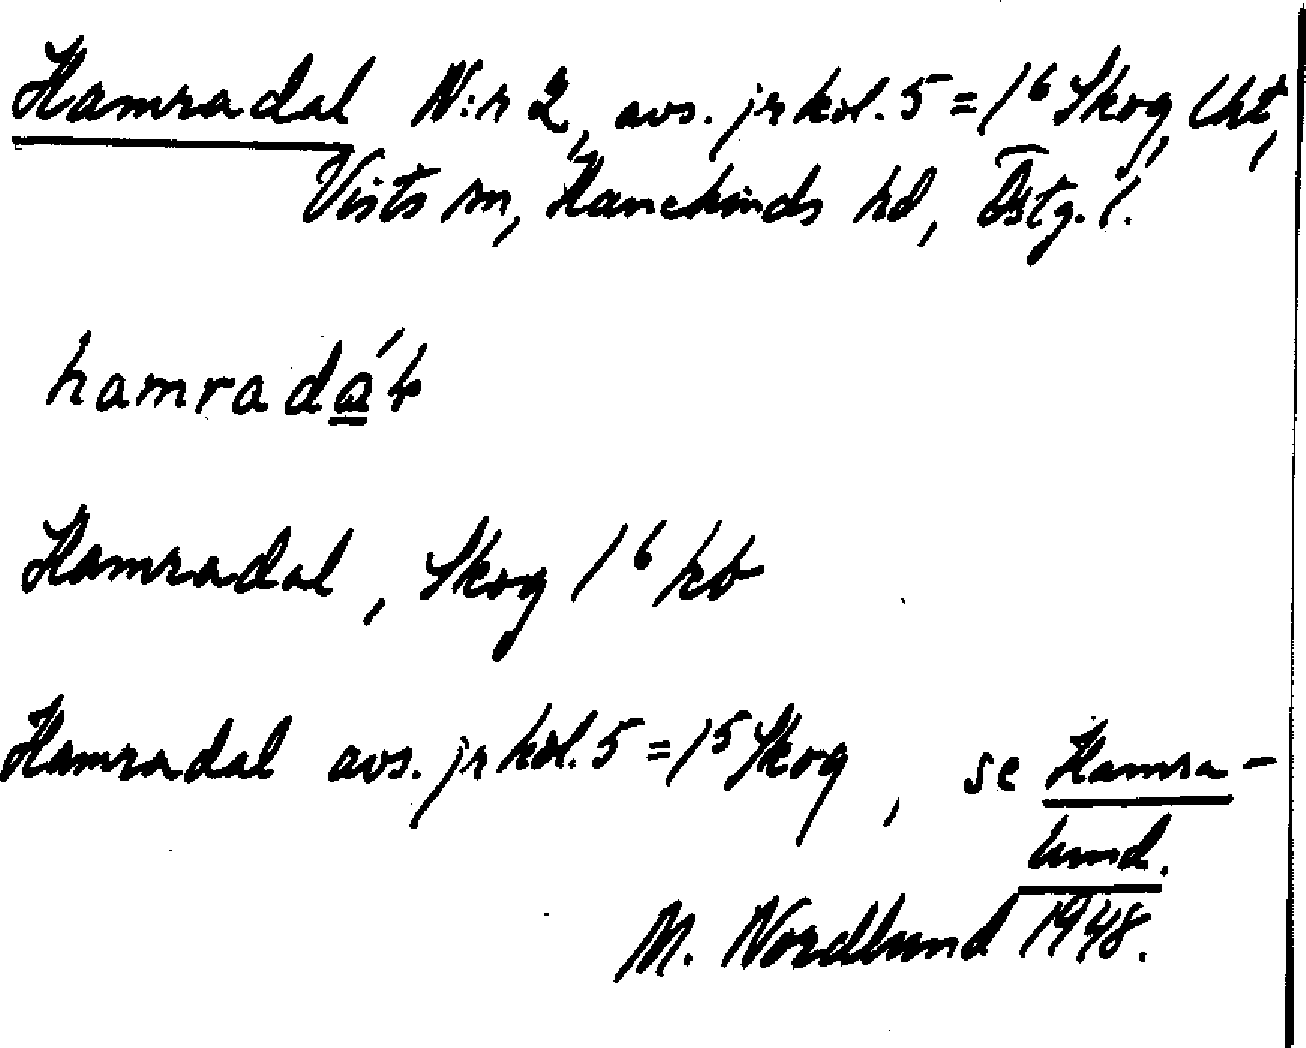 Hamradal N:r 2, avs. jr kol. 5 = 1⁶ Skog, lht,
Vists sn, Hanekinds hd, Östg. l.
hamradál
Hamradal, Skog 1⁶ kb
Hamradal avs. jr kol. 5 = 1⁵ Skog, se Hamra-
lund.
M. Nordlund 1948.